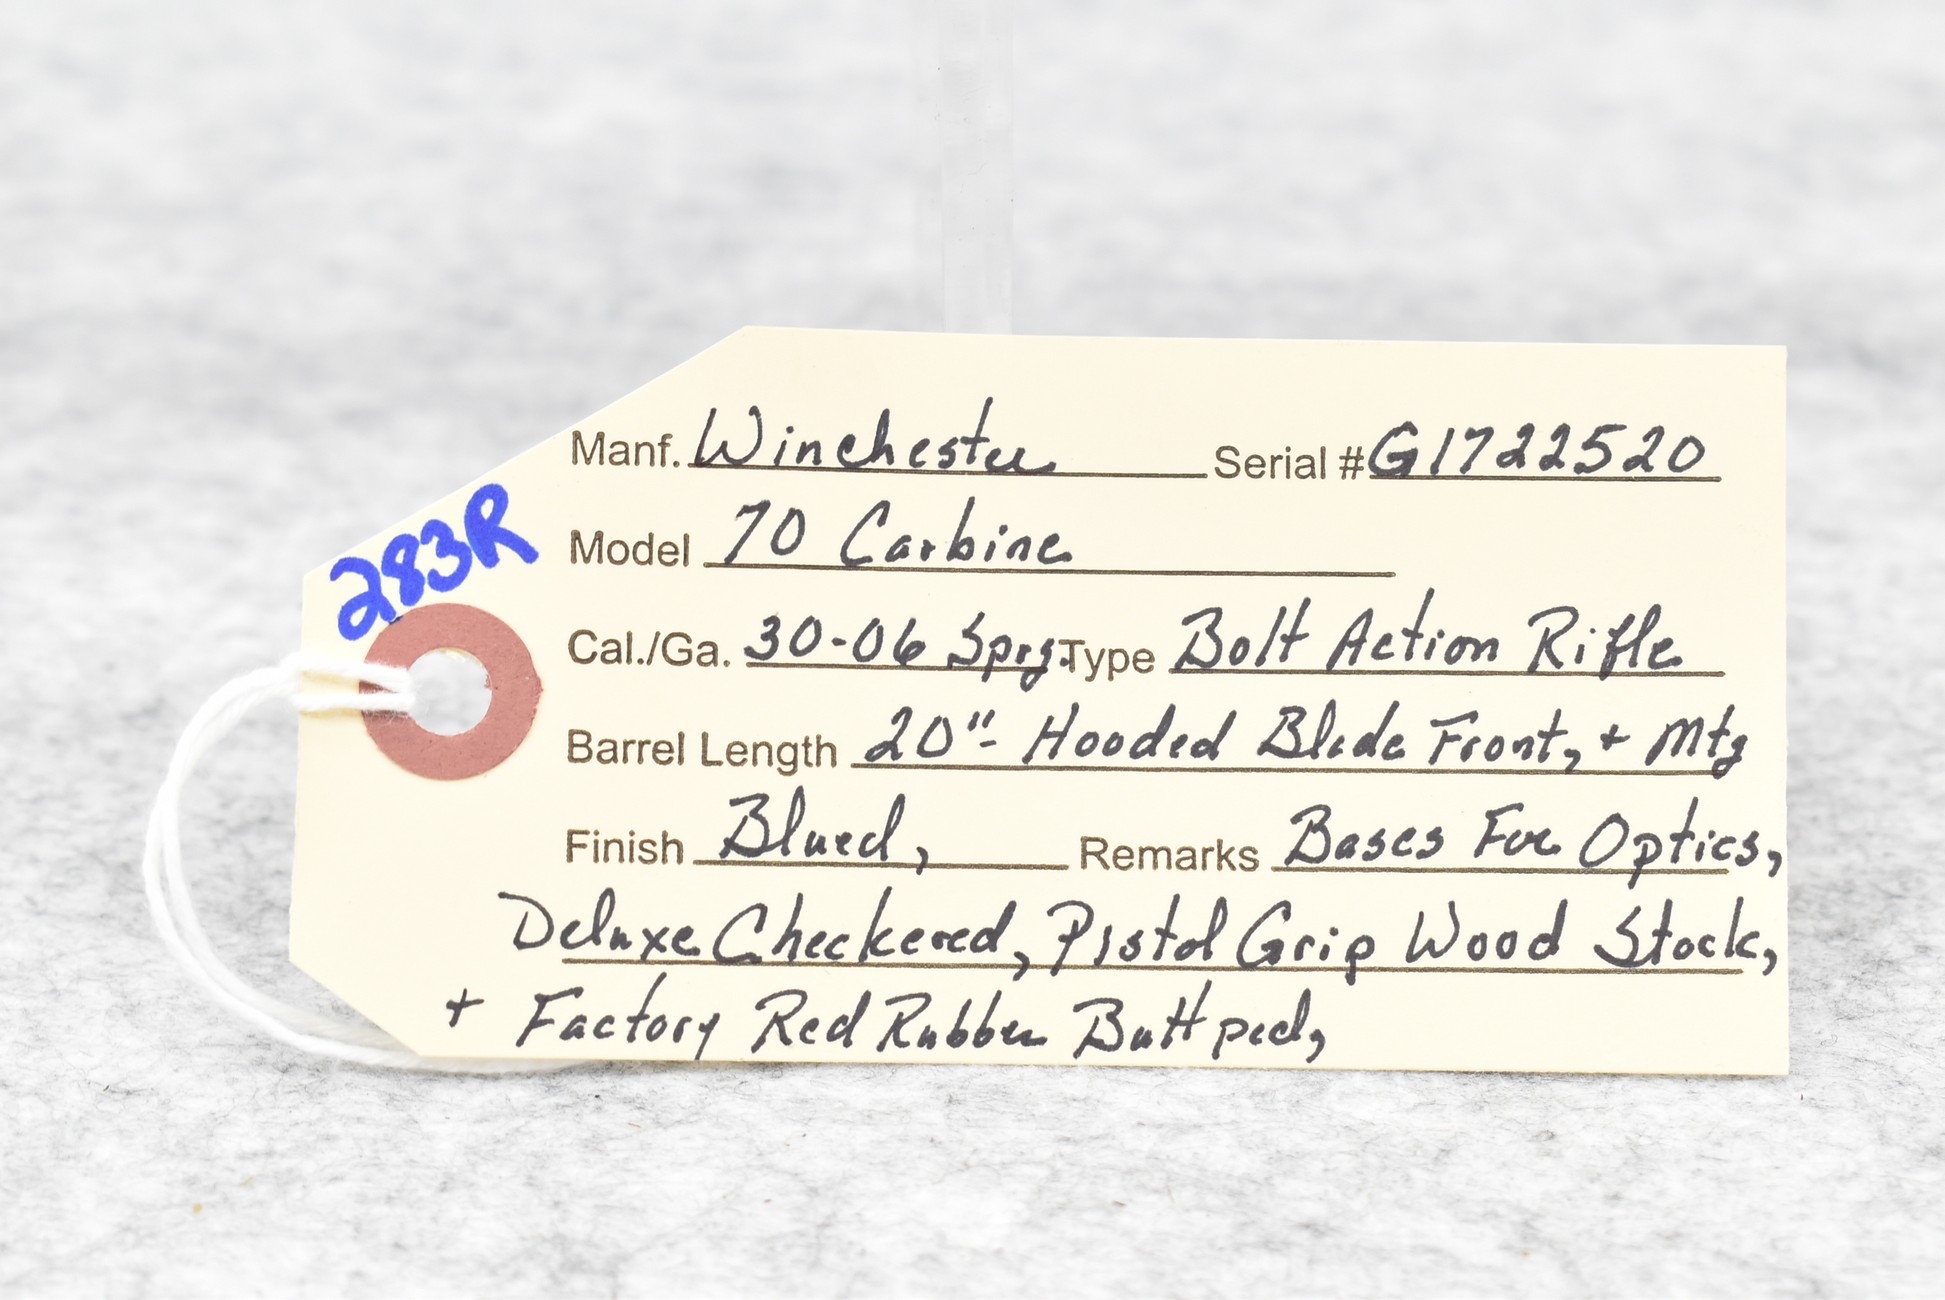 283R
Manf. Winchester Serial # G1722520
Model 70 Carbine
Cal./Ga. 30-06 Sprg. Type Bolt Action Rifle
Barrel Length 20"- Hooded Blade Front, + Mtg
Finish Blued, Remarks Bases For Optics,
Deluxe Checkered, Pistol Grip Wood Stock,
+ Factory Red Rubber Buttpad,